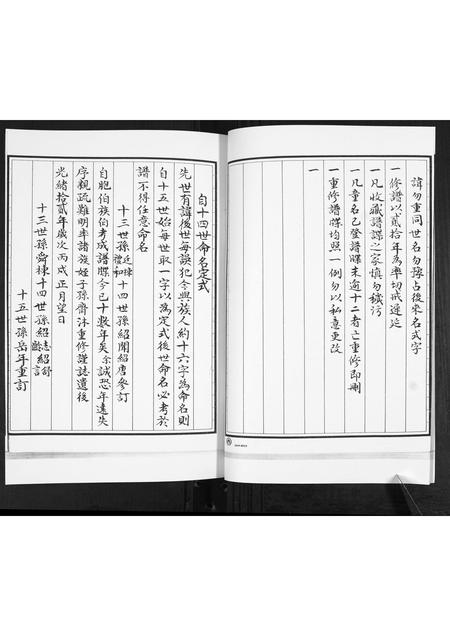 諱勿重同世名勿豫占後來名式字
一修譜以貳拾年為率切戒遲延
一凡收藏譜諜之家慎勿穢污
一凡童名已登譜牒未逾十二者亡重修即刪
一重修譜牒均照一例勿以私意更改
一
自十四世命名定式
先世有諱後世每誤犯今與族人約十六字為命名則
自十五世始每世取一字以為定式後世命名必考於
譜不得任意命名
十三世孫廷棟禮和十四世孫紹聞紹唐參訂
自胞伯族伯考成譜牒今已十數年矣余誠恐年遠失
序親疏難明率諸族姪子孫齋沐重修謹誌遺後
光緒拾貳年歲次丙戌正月望日
十三世孫舜棟十四世孫紹志紹舒紹齡紹言
十五世孫岳年重訂